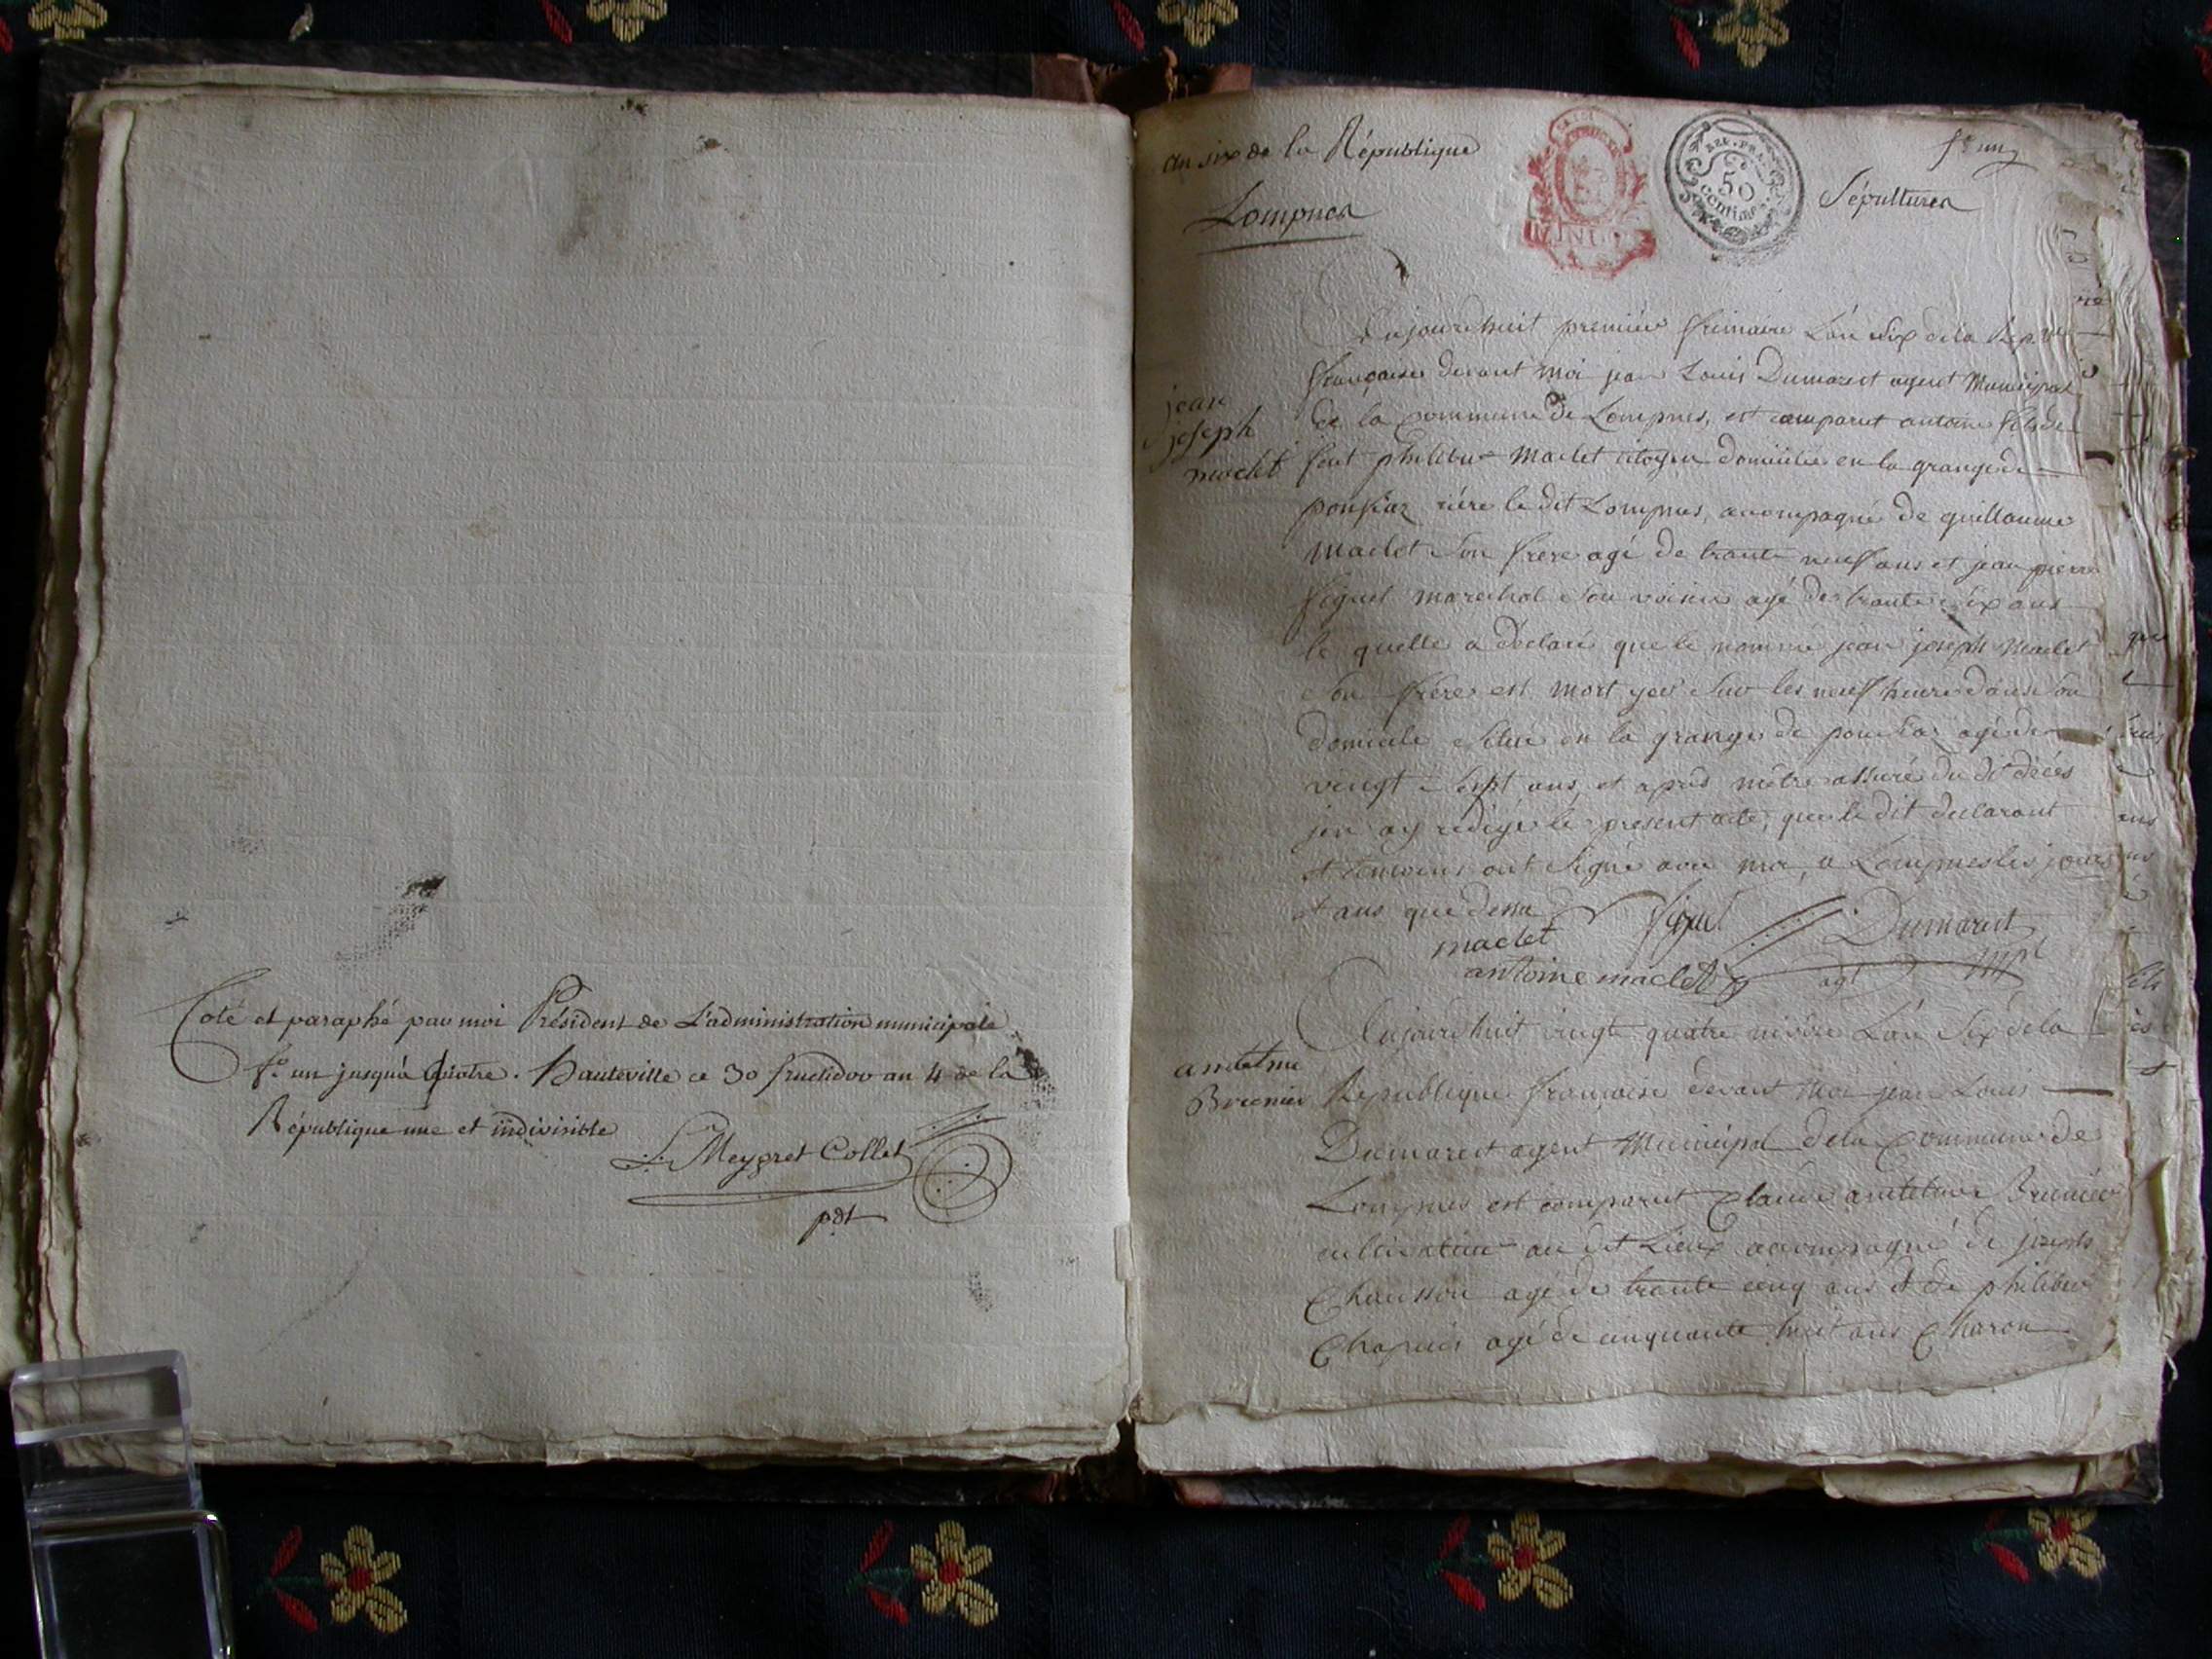 Coté et paraphé par moi Président de L'administration municipale
f.o un jusqu'à Quatre. Hauteville ce 30 fructidor an 4 de la
République une et indivisible
L. Meygret Collet
pdt
an six de la République
f.o un
Lompnes
REP. FRA
50
centimes
Sépultures
Aujourdhuit premier frimaire L'an Six de la Rep.que
françaises devant moi jean Louis Dumarest agent Municipal
jean
joseph
maclet
de la Commune de Lompnes, est comparut antoine fils de
feut philibert Maclet citoyen domicilié en la grange de
rière le dit Lompnes, acompagné de guillaume
Maclet Son frere agé de trante neuf ans et jean pierre
figuet marechal Son voisin agé de trante Six ans
le quelle a déclaré que le nommé jean joseph Maclet
Son frère est mort yer Sur les neuf heure dans Son
domicile Situé en la grange de agé de
veingt Sept ans, et après mêtre assuré du dit décés
jen ay redigé le present acte, que le dit declarant
et temoins ont Signé avec moi, a Lompnes les jour
et ans que dessu
maclet figuet Dumarest
antoine maclet agt mpl
Aujourdhuit vingt quatre nivôse L'an Six de la
antelme
Brunier
Republique françaisse devant Moi jean Louis
Dumarest agent Municipal dela Commune de
Lompnes est comparut Claude antelme Brunier
cultivateur au dit Lieux acompagné de joseph
agé de trante cinq ans et de philibert
Chapuis agé de cinquante huit ans Charon